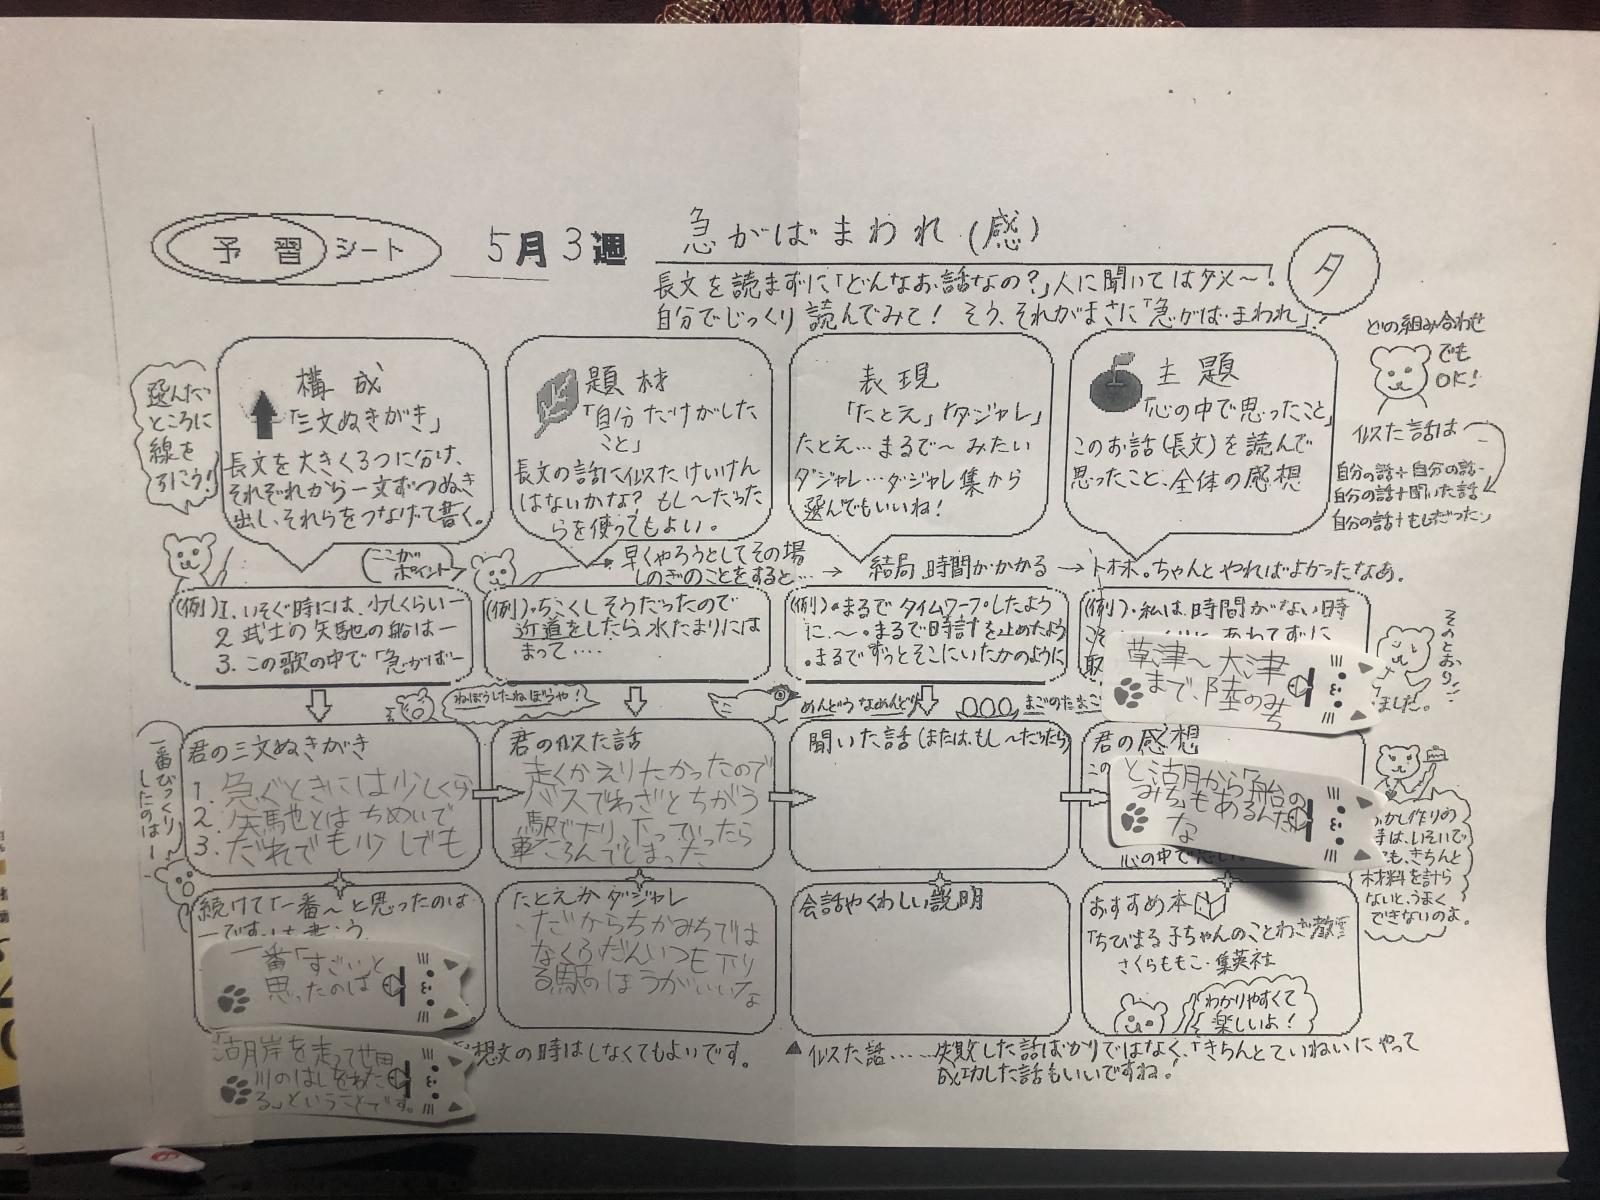 予習シート
5月3週
急がばまわれ(感)
夕
長文を読まずに「どんなお話なの?」人に聞いてはダメ~!
自分でじっくり読んでみて! そう、それがまさに「急がばまわれ」!
選んだ
ところに
線を
引こう!
構成
「三文ぬきがき」
長文を大きく3つに分け、
それぞれから一文ずつぬき
出し、それらをつなげて書く。
題材
「自分だけがした
こと」
長文の話に似たけいけん
はないかな? もし~だった
らを使ってもよい。
表現
「たとえ」「ダジャレ」
たとえ…まるで~みたい
ダジャレ…ダジャレ集から
選んでもいいね!
主題
「心の中で思ったこと」
このお話(長文)を読んで
思ったこと、全体の感想
どの組み合わせ
でも
OK!
似た話は
自分の話+自分の話
自分の話+聞いた話
自分の話+もしだったら
ここが
ポイント
早くやろうとしてその場
しのぎのことをすると…
→ 結局、時間がかかる
→トホホ。ちゃんとやればよかったなあ。
(例)1. いそぐ時には、少しくらいー
2. 武士の矢馳の船はー
3. この歌の中で「急がばー
(例)・ちこくしそうだったので
近道をしたら、水たまりには
まって‥‥
(例)・まるでタイムワープしたよう
に、~。まるで時計を止めたよう
・まるでずっとそこにいたかのように
(例)・私は、時間がない時
あわてずに
取
草津~大津
まで、陸のみち
そのとおり!!
ました。
ねぼうしたねぼうや!
めんどうなめんどり
まごのたまご
一番びっくり
したのはー
君の三文ぬきがき
1. 急ぐときには少しくら
2. 矢馳とはちめいで
3. だれでも少しでも
君の似た話
走くかえりたかったので
バスでわざとちがう
駅でおり、下っていったら
ころんでしまった
聞いた話(または、もし~だったら)
君の感想
こ
と湖から「船の
みち」もあるんだ
な
心の中で思い
続けて「一番~と思ったのは
一番「すごいと
思ったのは
「湖岸を走って世田
川のはしをわた
る」ということです。
たとえかダジャレ
だからちかみちでは
なくふだんいつも下り
る駅のほうがいいな
会話やくわしい説明
おすすめ本
「ちびまる子ちゃんのことわざ教室」
さくらももこ・集英社
わかりやすくて
楽しいよ!
かし作りの
時は、いそいで
ても、きちんと
材料を計ら
ないと、うまく
できないのよ。
想文の時はしなくてもよいです。
▲似た話……失敗した話ばかりではなく、「きちんとていねいにやって
成功した話もいいですね!